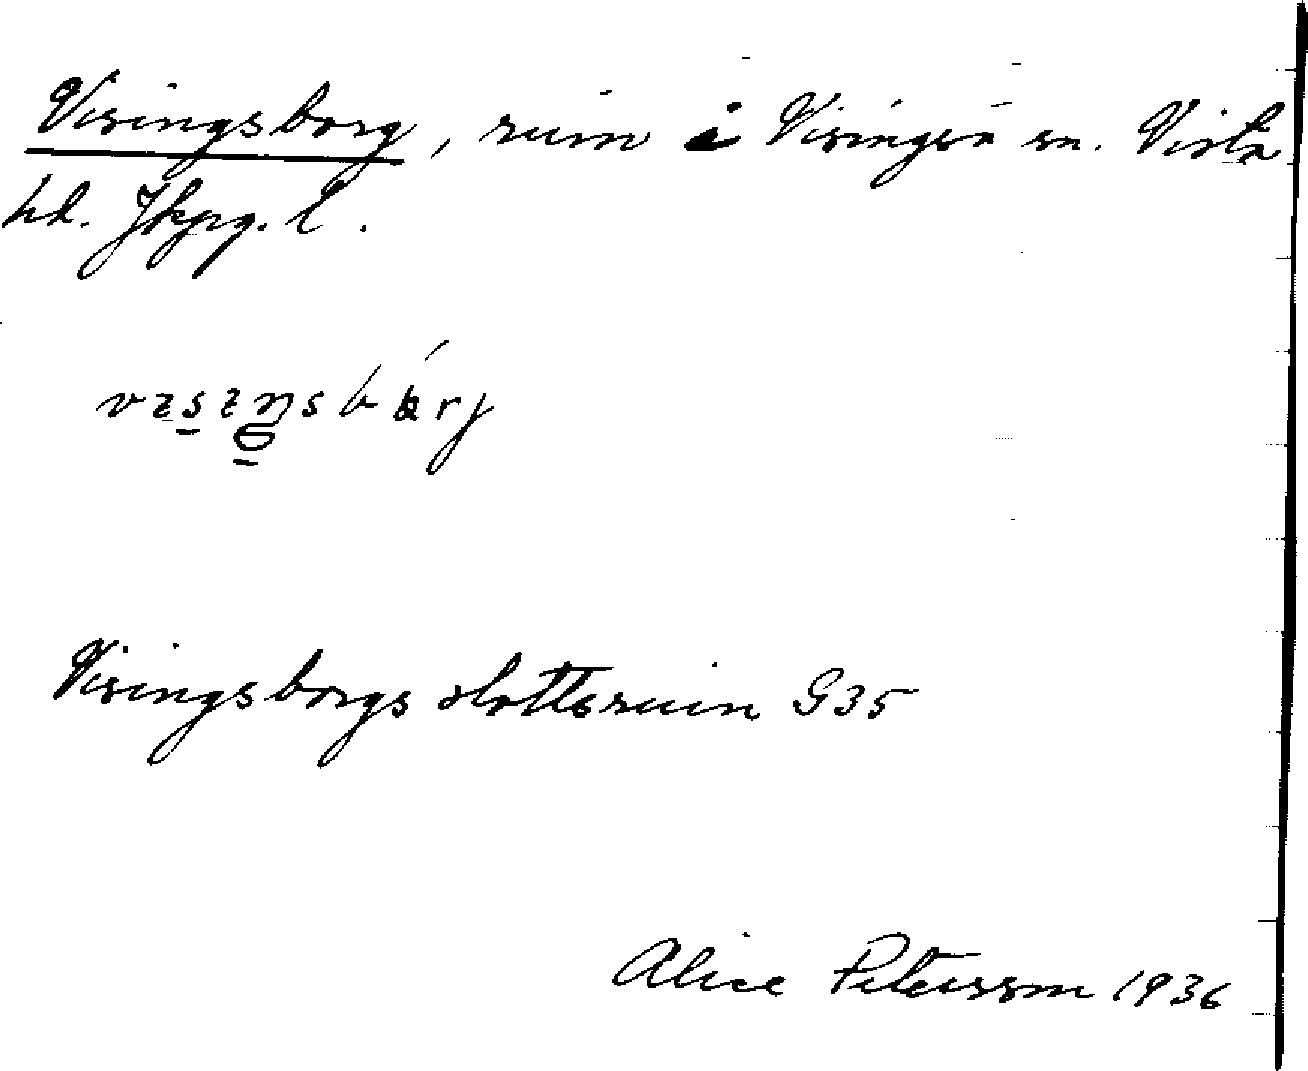 Visingsborg, ruin i Visingsö sn. Vista
hd. Jkpg. l.
Visingsborgs slottsruin G35
Alice Petersson 1936